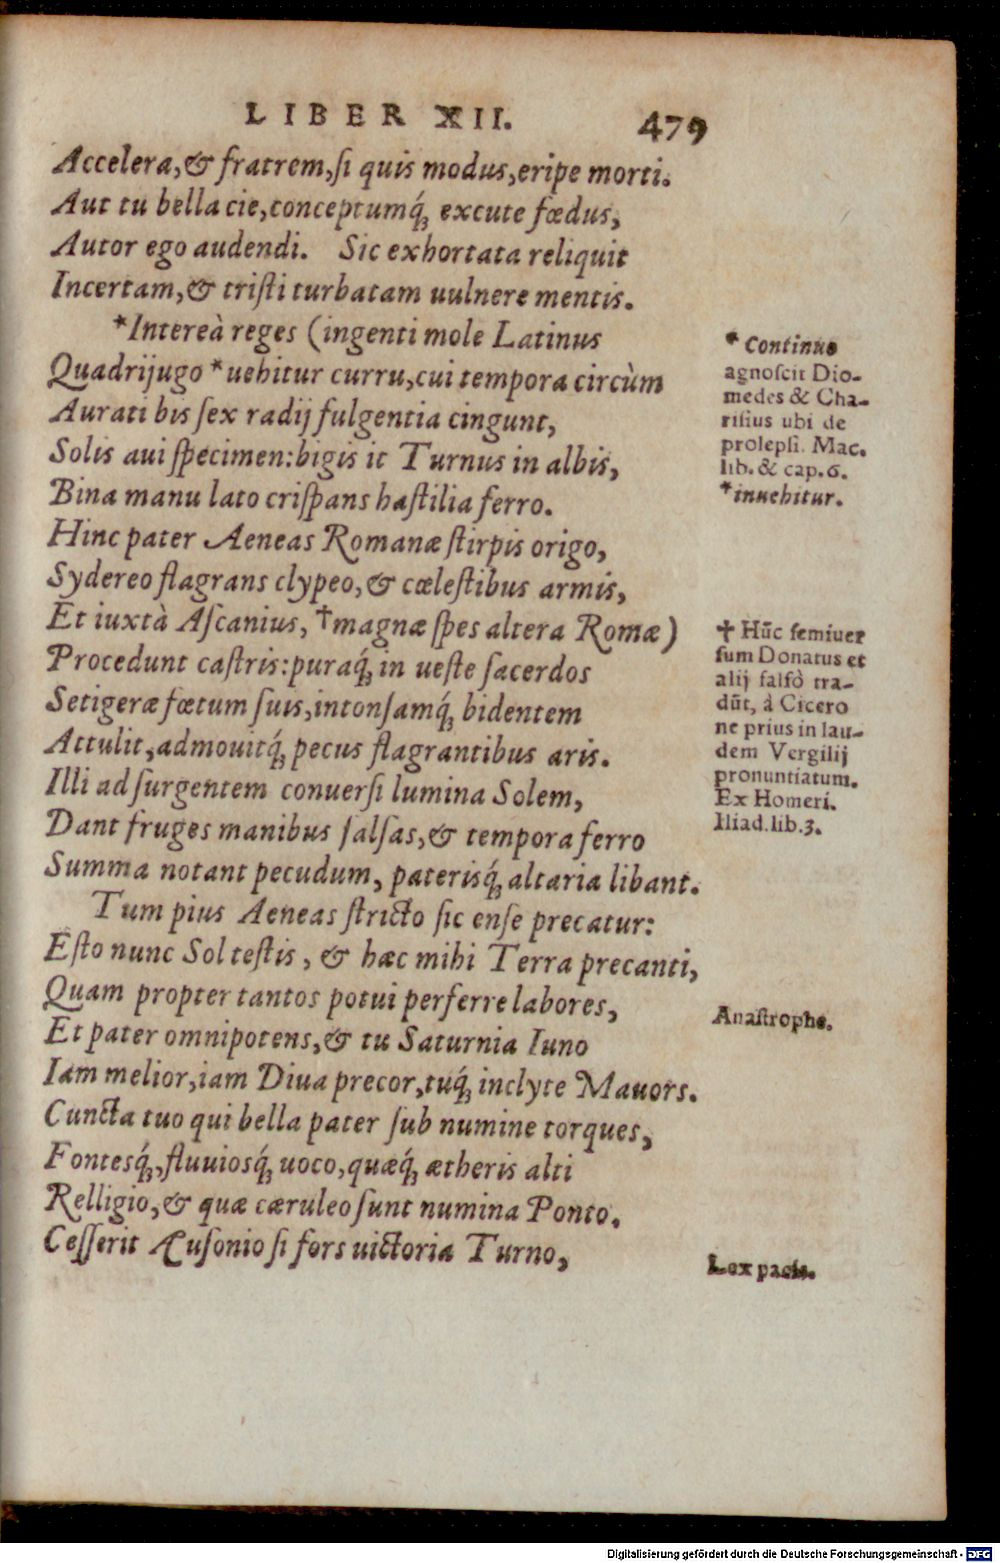 LIBER XII. 479
Accelera, & fratrem, ſi quis modus, eripe morti.
Aut tu bella cie, conceptumq́; excute fœdus,
Autor ego audendi. Sic exhortata reliquit
Incertam, & triſti turbatam uulnere mentis.
*Intereà reges (ingenti mole Latinus
Quadrijugo *uehitur curru, cui tempora circùm
Aurati bis ſex radij fulgentia cingunt,
Solis aui ſpecimen: bigis it Turnus in albis,
Bina manu lato criſpans haſtilia ferro.
Hinc pater Aeneas Romanæ ſtirpis origo,
Sydereo flagrans clypeo, & cœleſtibus armis,
Et iuxtà Aſcanius, †magnæ ſpes altera Romæ)
Procedunt caſtris: puraq́; in ueſte ſacerdos
Setigeræ fœtum ſuis, intonſamq́; bidentem
Attulit, admouitq́; pecus flagrantibus aris.
Illi ad ſurgentem conuerſi lumina Solem,
Dant fruges manibus ſalſas, & tempora ferro
Summa notant pecudum, paterisq́; altaria libant.
Tum pius Aeneas ſtricto ſic enſe precatur:
Eſto nunc Sol teſtis, & hæc mihi Terra precanti,
Quam propter tantos potui perferre labores,
Et pater omnipotens, & tu Saturnia Iuno
Iam melior, iam Diua precor, tuq́; inclyte Mauors.
Cuncta tuo qui bella pater ſub numine torques,
Fontesq́;, fluuiosq́; uoco, quæq́; ætheris alti
Relligio, & quæ cæruleo ſunt numina Ponto.
Ceſſerit Auſonio ſi fors uictoria Turno,
* Continuo
agnoſcit Dio-
medes & Cha-
riſius ubi de
prolepſi. Mac.
lib. & cap. 6.
*inuehitur.
† Hūc ſemiuer
ſum Donatus et
alij falſò tra-
dūt, à Cicero
ne prius in lau-
dem Vergilij
pronuntiatum.
Ex Homeri.
Iliad. lib. 3.
Anaſtrophe.
Lex pacis.
Digitalisierung gefördert durch die Deutsche Forschungsgemeinschaft - DFG